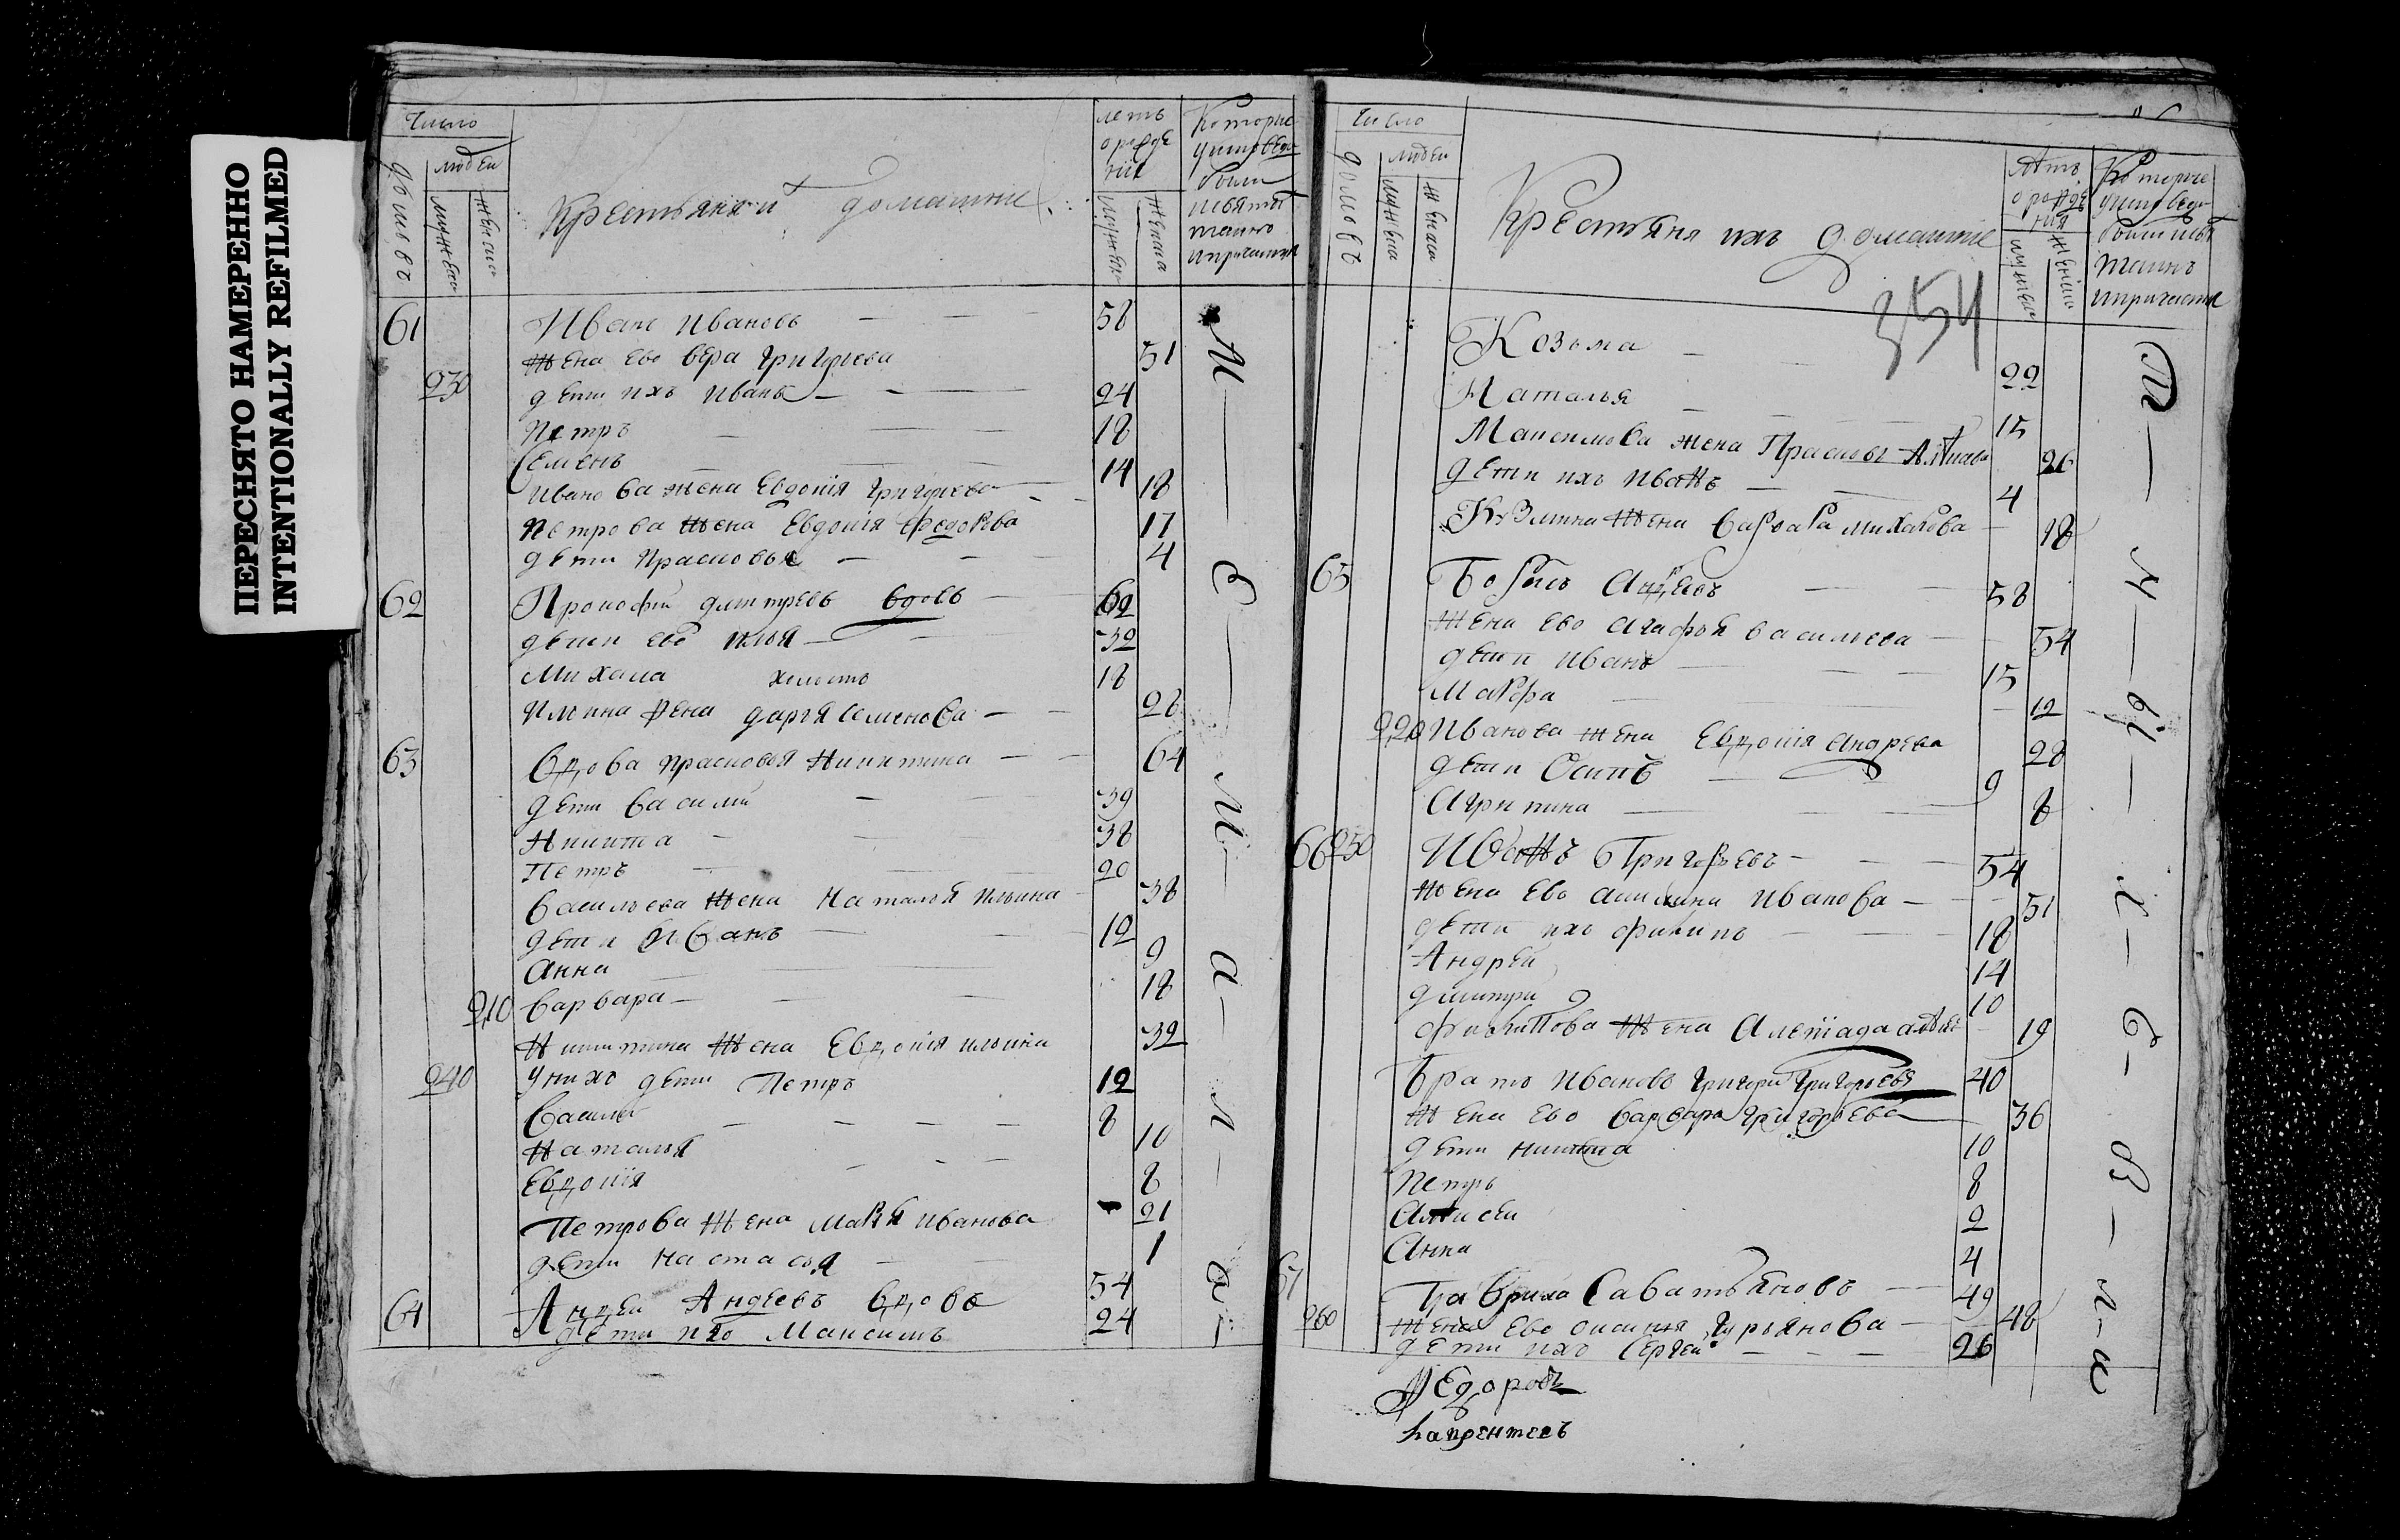 ПЕРЕСНЯТО НАМЕРЕННО
INTENTIONALLY REFILMED
Число
домовъ
людеи
мужеска
женска
Крестьяня и домашние
летъ
о рожде
нии
мужеска
женска
Которые
у исповеди
были
и святыхъ
таинъ
и причастия
61 Иванъ Ивановъ 58
жена ево вера григурьева 51
230 дети ихъ Иванъ 24
Петръ 18
Семенъ 14
Иванова жена Евдокия григурьева 18
Петрова жена Евдокия федорова 17
дети Прасковья 4
62 Прокофий дмитревъ вдовъ 62
дети ево илья 32
Михаила холостъ 18
Ильина жена дарья семенова 28
63 Вдова прасковья Никитина 64
дети василий 39
Никита 38
Петръ 20
васильева жена наталья ильина 38
дети Иванъ 12
Анна 9
210 варвара 18
Никитина жена Евдокия ильина 32
240 у нихъ дети Петръ 12
Василий 8
Наталья 10
Евдокия 8
Петрова жена Марья Иванова 21
дети Настасья 1
64 Андреи Андеевъ вдовъ 54
дети ихъ Максимъ 24
Число
домовъ
людеи
мужеска
женска
Крестьяня ихъ домашние
летъ
о рожде
ния
мужеска
женска
Которые
у исповеди
были и свя
таинъ
и причастия
354
Козьма 22
Наталья 15
Максимова жена Прасковья 26
дети ихъ Иванъ 4
Кузмина жена варвара михайлова 18
65 Борисъ Андреевъ 58
жена ево агафья васильева 54
дети Иванъ 15
Марфа 12
220 Иванова жена Евдокия Андрева 28
дети Осипъ 9
Агрипина 8
66 250 Иванъ Григорьевъ 54
жена ево акилина Иванова 51
дети ихъ филипъ 18
Андреи 14
дмитри 10
филипова жена 19
братъ Ивановъ григори Григорьевъ 40
жена ево варвара григорьева 36
дети никита 10
Петръ 8
Алексеи 2
Анна 4
67 Гаврила Саватьяновъ 49
260 жена ево гурьянова 48
дети ихъ Сергеи 26
Федоровъ
Лаврентеевъ